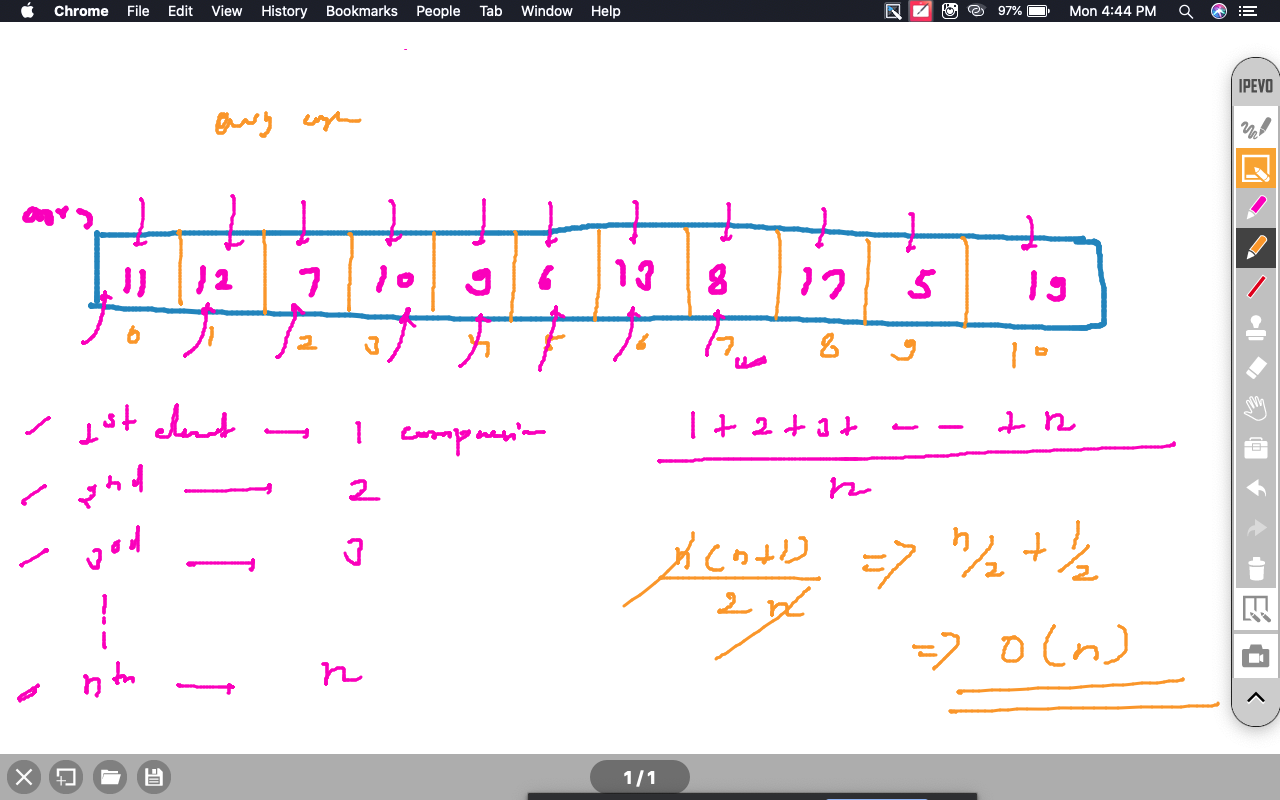 Chrome File Edit View History Bookmarks People Tab Window Help 97% Mon 4:44 PM
IPEVO
11 12 7 10 9 6 13 8 17 5 19
0 1 2 3 4 5 6 7 8 9 10
1st element → 1 comparison
2nd → 2
3rd → 3
nth → n
1 + 2 + 3 + - - + n
n
n(n+1)
2n
=> n/2 + 1/2
=> O(n)
1/1